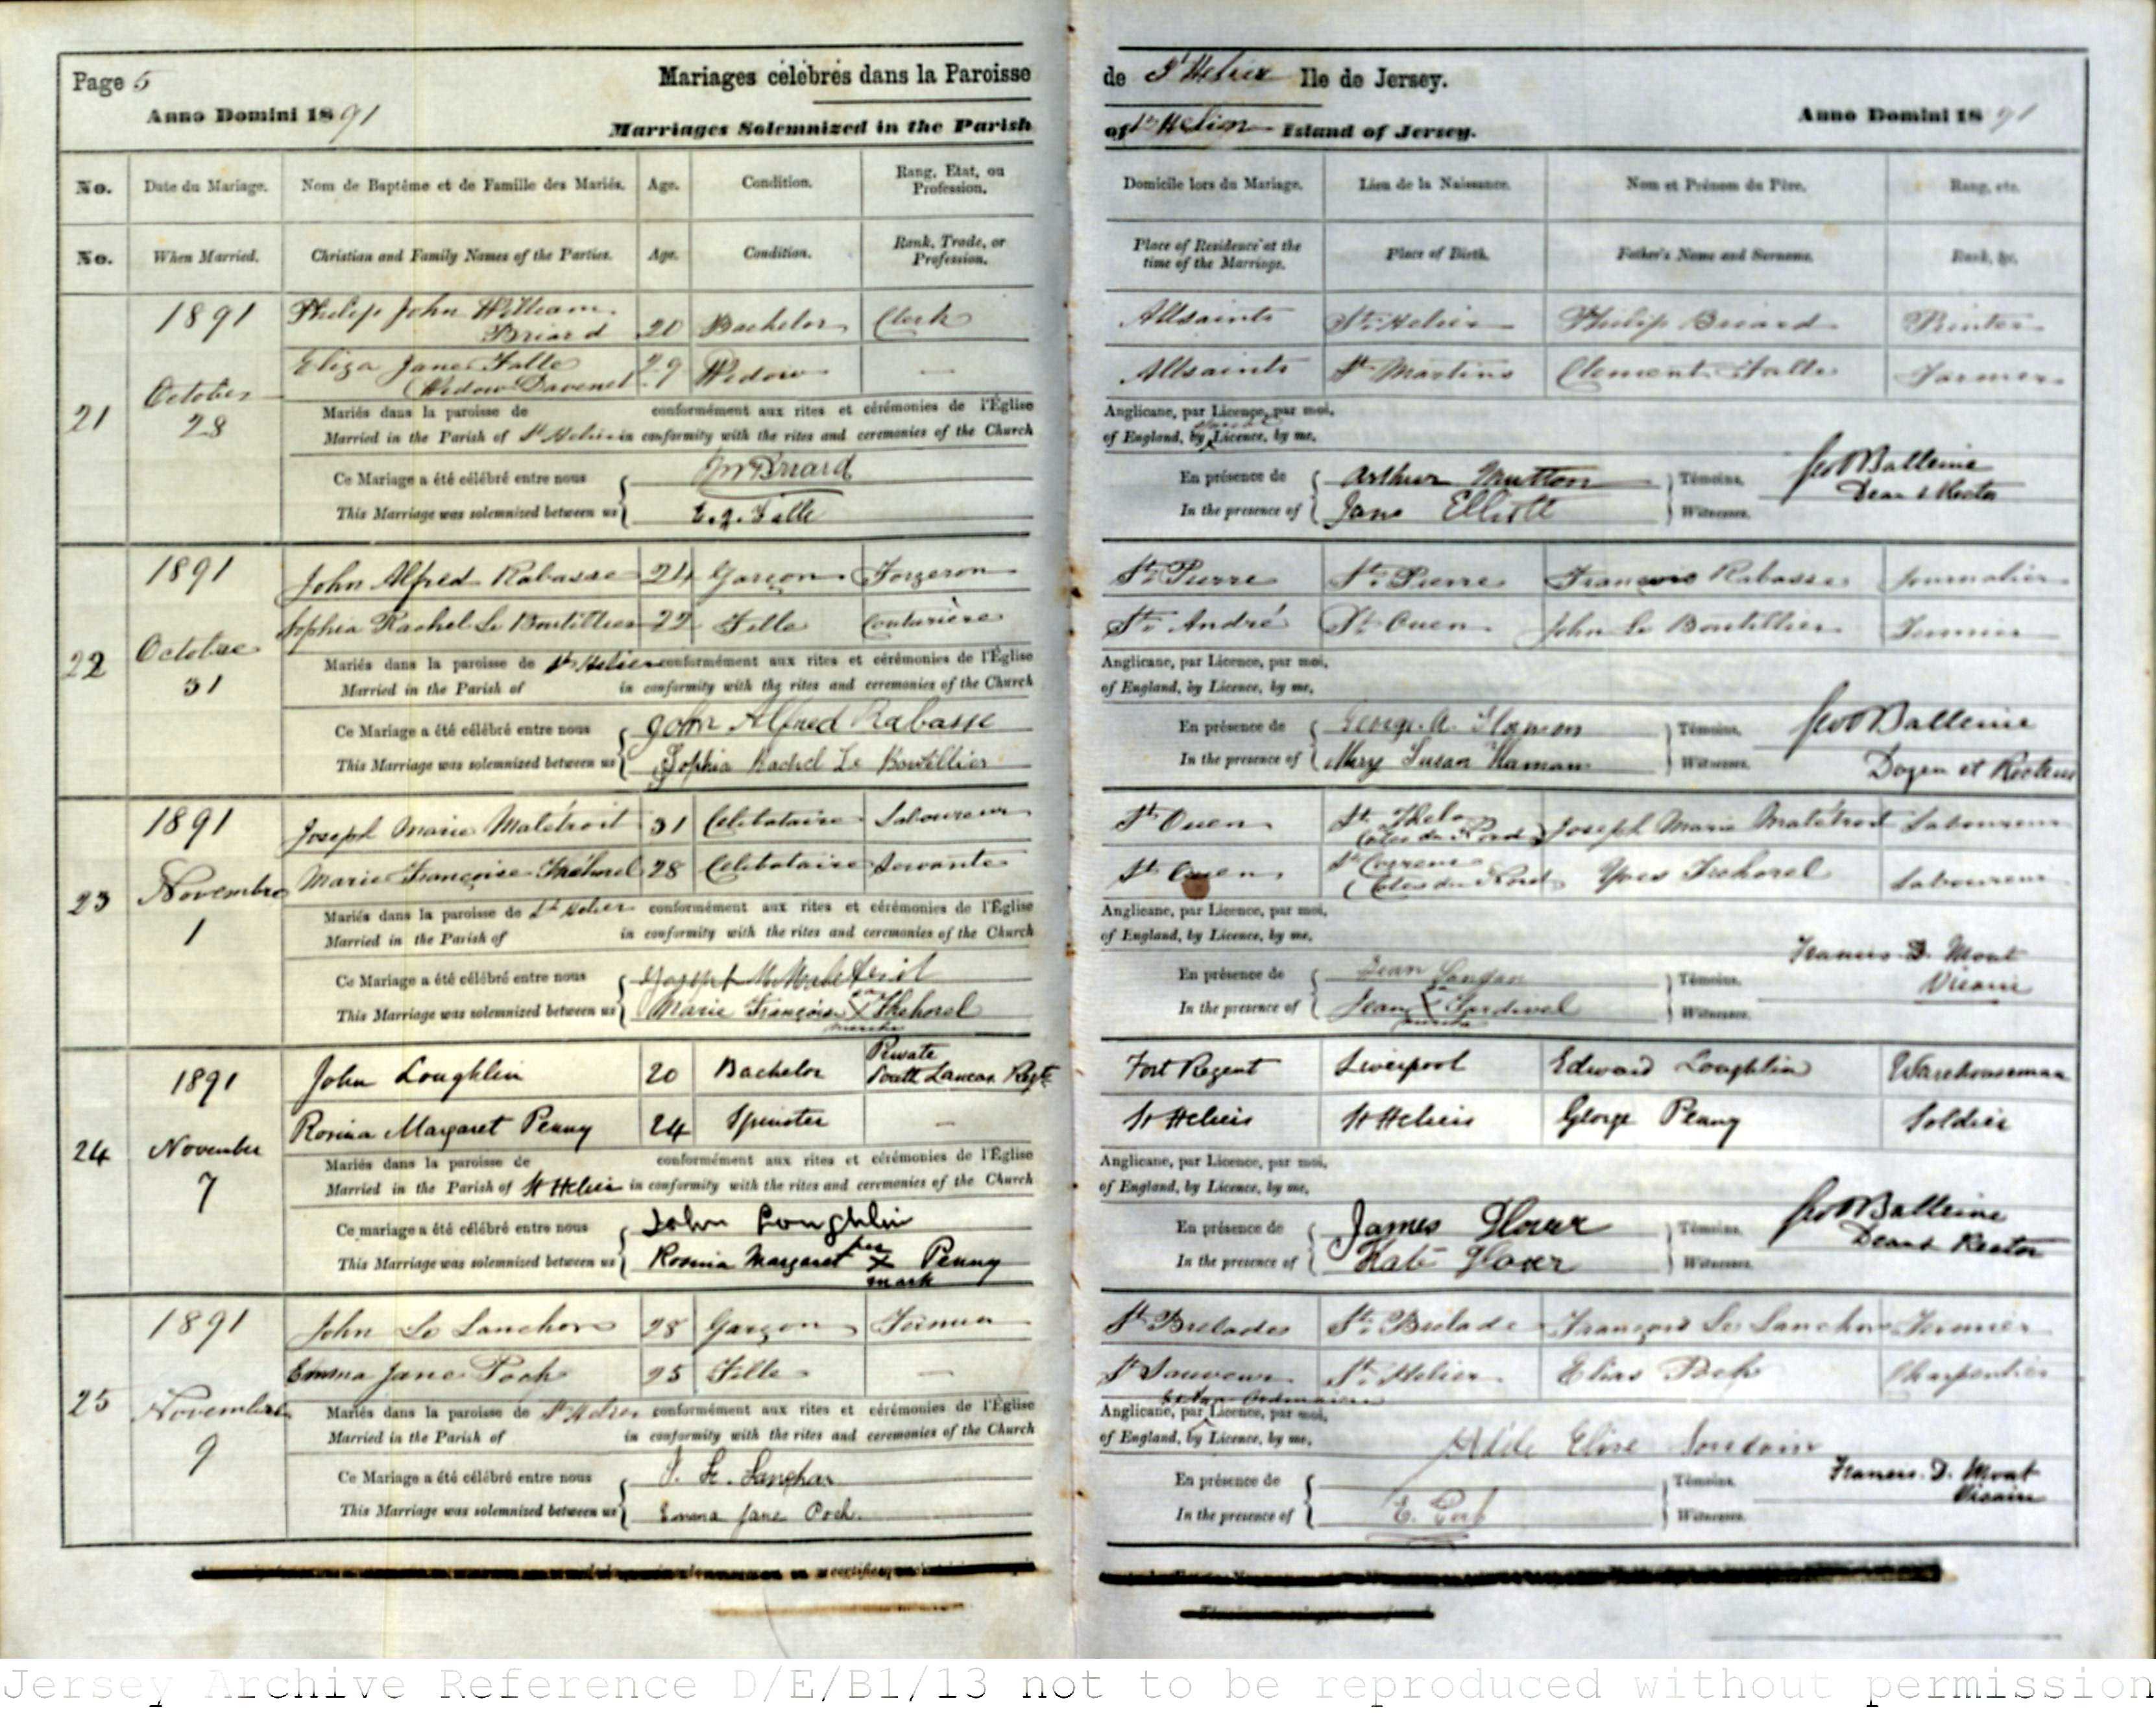 Page 5 Mariages célébrés dans la Paroisse de St Helier Ile de Jersey.
Anno Domini 1891 Marriages Solemnized in the Parish of St Helier Island of Jersey. Anno Domini 1891
No. Date du Mariage. Nom de Baptême et de Famille des Mariés. Age. Condition. Rang, Etat, ou Profession. Domicile lors du Mariage. Lieu de la Naissance. Nom et Prénom du Père. Rang, etc.
No. When Married. Christian and Family Names of the Parties. Age. Condition. Rank, Trade, or Profession. Place of Residence at the time of the Marriage. Place of Birth. Father's Name and Surname. Rank, &c.
1891 Philip John William Briard 20 Bachelor Clerk Allsaints St Helier Philip Briard Printer
21 October 28 Eliza Jane Falle (Widow Davenel 29 Widow — Allsaints St Martins Clement Falle Farmer
Mariés dans la paroisse de conformément aux rites et cérémonies de l'Église Anglicane, par Licence, par moi,
Married in the Parish of St Helier in conformity with the rites and ceremonies of the Church of England, by Licence, by me,
Ce Mariage a été célébré entre nous Briard En présence de Arthur Mutton Témoins, Geo Balleine
This Marriage was solemnized between us E. J. Falle In the presence of Jane Elliott Witnesses. Dean & Rector
1891 John Alfred Rabasse 24 Garçon Forgeron St Pierre St Pierre François Rabasse Journalier
22 Octobre 31 Sophia Rachel Le Boutillier 22 Fille Couturière St André St Ouen John Le Boutillier Fermier
Mariés dans la paroisse de St Helier conformément aux rites et cérémonies de l'Église Anglicane, par Licence, par moi,
Married in the Parish of in conformity with the rites and ceremonies of the Church of England, by Licence, by me,
Ce Mariage a été célébré entre nous John Alfred Rabasse En présence de George A. Hamon Témoins, Geo Balleine
This Marriage was solemnized between us Sophia Rachel Le Boutillier In the presence of Mary Susan Hamon Witnesses. Doyen et Recteur
1891 Joseph Marie Malétroit 31 Celibataire Laboureur St Ouen St Thelo Côtes du Nord Joseph Marie Malétroit Laboureur
23 Novembre 1 Marie Françoise Tréhorel 28 Celibataire Servante St Ouen Côtes du Nord Yves Trehorel Laboureur
Mariés dans la paroisse de St Helier conformément aux rites et cérémonies de l'Église Anglicane, par Licence, par moi,
Married in the Parish of in conformity with the rites and ceremonies of the Church of England, by Licence, by me,
Ce Mariage a été célébré entre nous Joseph M En présence de Jean Témoins, Francis D. Mout
This Marriage was solemnized between us Marie Françoise X Trehorel marke In the presence of Jean X marke Witnesses. Vicaire
1891 John Loughlin 20 Bachelor Private South Lancas. Regt. Fort Regent Liverpool Edward Loughlin Warehouseman
24 November 7 Rosina Margaret Penny 24 Spinster — St Heliers St Heliers George Penny Soldier
Mariés dans la paroisse de conformément aux rites et cérémonies de l'Église Anglicane, par Licence, par moi,
Married in the Parish of St Helier in conformity with the rites and ceremonies of the Church of England, by Licence, by me,
Ce mariage a été célébré entre nous John Loughlin En présence de James Glover Témoins, Geo Balleine
This Marriage was solemnized between us Rosina Margaret her X mark Penny In the presence of Kate Glover Witnesses. Dean & Rector
1891 John Le Lancheor 28 Garçon Fermier St Brelades St Brelade François Le Fermier
25 Novembre 9 Emma Jane Poch 25 Fille — St Sauveur St Helier Elias Poch Charpentier
Mariés dans la paroisse de St Helier conformément aux rites et cérémonies de l'Église Anglicane, par Licence, par moi,
Married in the Parish of in conformity with the rites and ceremonies of the Church of England, by Licence, by me, Elise
Ce Mariage a été célébré entre nous J. Le En présence de Témoins, Francis. D. Mout
This Marriage was solemnized between us Emma Jane Poch. In the presence of E. Witnesses. Vicaire
Jersey Archive Reference D/E/B1/13 not to be reproduced without permission